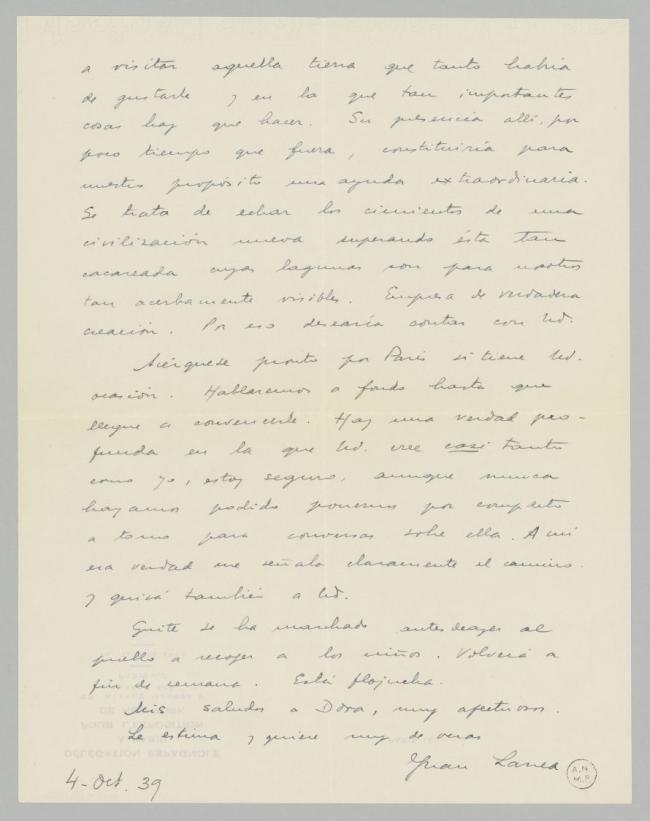 a visitar aquella tierra que tanto habría
de gustarle y en la que tan importantes
cosas hay que hacer. Su presencia allí, por
poco tiempo que fuera, constituiría para
nuestro propósito una ayuda extraordinaria.
Se trata de echar los cimientos de una
civilización nueva superando ésta tan
cacareada cuyas lagunas son para nosotros
tan acerbamente visibles. Empresa de verdadera
creación. Por eso desearía contar con Ud.
Acérquese pronto por París si tiene Ud.
ocasión. Hablaremos a fondo hasta que
llegue a convencerle. Hay una verdad pro-
funda en la que Ud. cree casi tanto
como yo, estoy seguro, aunque nunca
hayamos podido ponernos por completo
a tono para conversar sobre ella. A mí
esa verdad me señala claramente el camino.
y quizá también a Ud.
Guite se ha marchado antesdeayer al
pueblo a recoger a los niños. Volverá a
fin de semana. Está flojucha.
Mis saludos a Dora, muy afectuosos.
Le estima y quiere muy de veras
Juan Larrea
4-Oct. 39
A.N.
M.P.
DÉLÉGATION ESPAGNOLE
POUR L'EXPOSITION